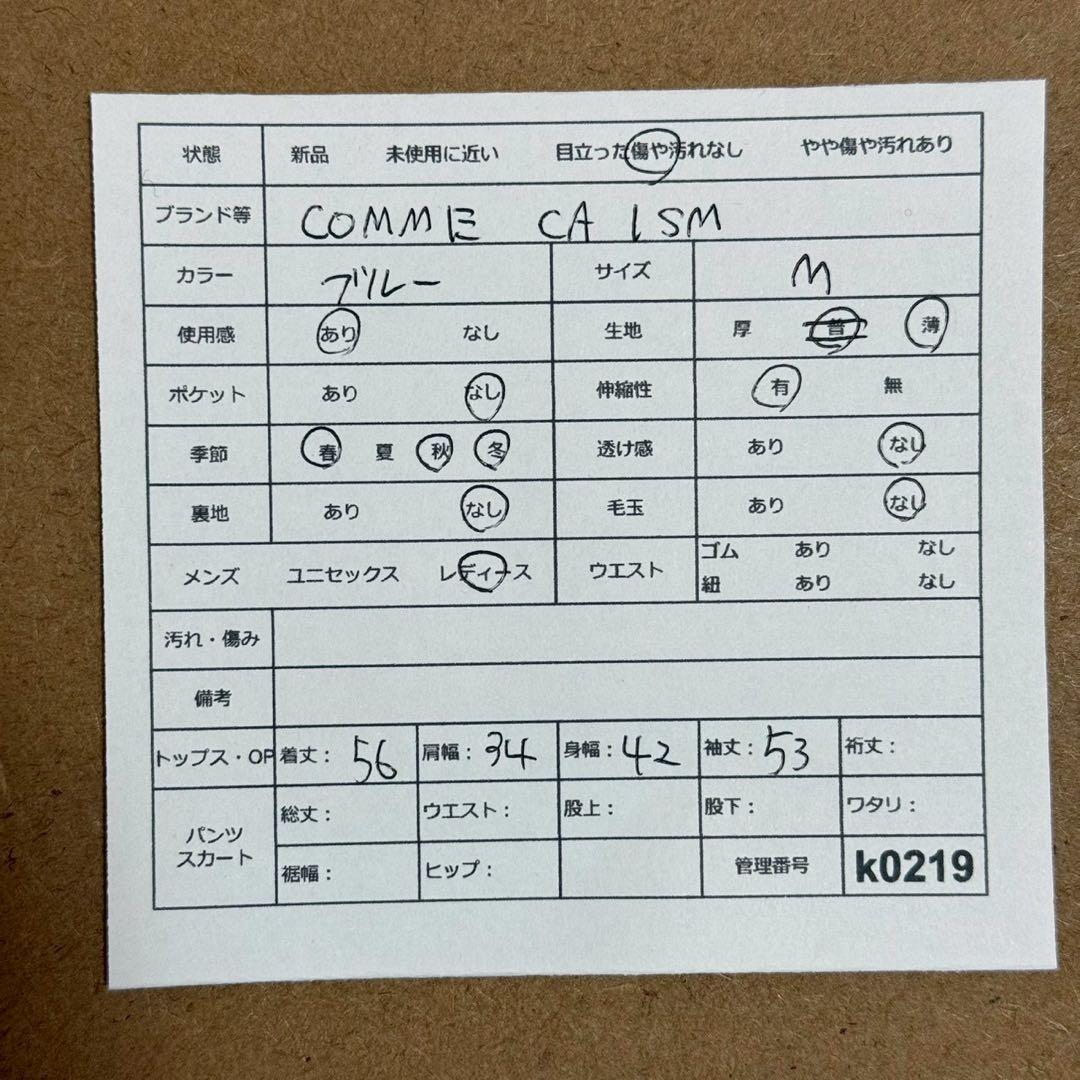 状態 新品 未使用に近い 目立った傷や汚れなし やや傷や汚れあり
ブランド等 COMME CA ISM
カラー ブルー サイズ M
使用感 あり なし 生地 厚 普 薄
ポケット あり なし 伸縮性 有 無
季節 春 夏 秋 冬 透け感 あり なし
裏地 あり なし 毛玉 あり なし
メンズ ユニセックス レディース ウエスト ゴム あり なし
紐 あり なし
汚れ・傷み
備考
トップス・OP 着丈: 56 肩幅: 34 身幅: 42 袖丈: 53 裄丈:
パンツ スカート 総丈: ウエスト: 股上: 股下: ワタリ:
裾幅: ヒップ: 管理番号 k0219